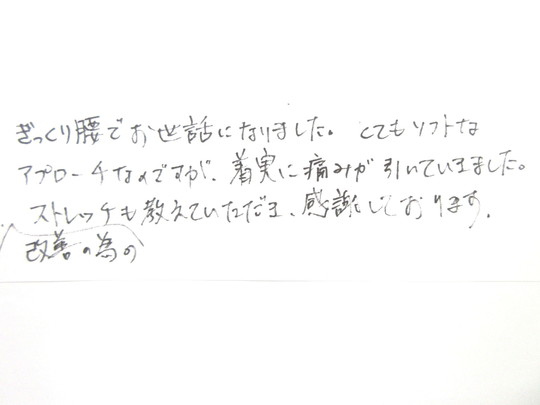 ぎっくり腰でお世話になりました。とてもソフトな
アプローチなのですが、着実に痛みが引いていきました。
ストレッチも教えていただき、感謝しております。
改善の為の